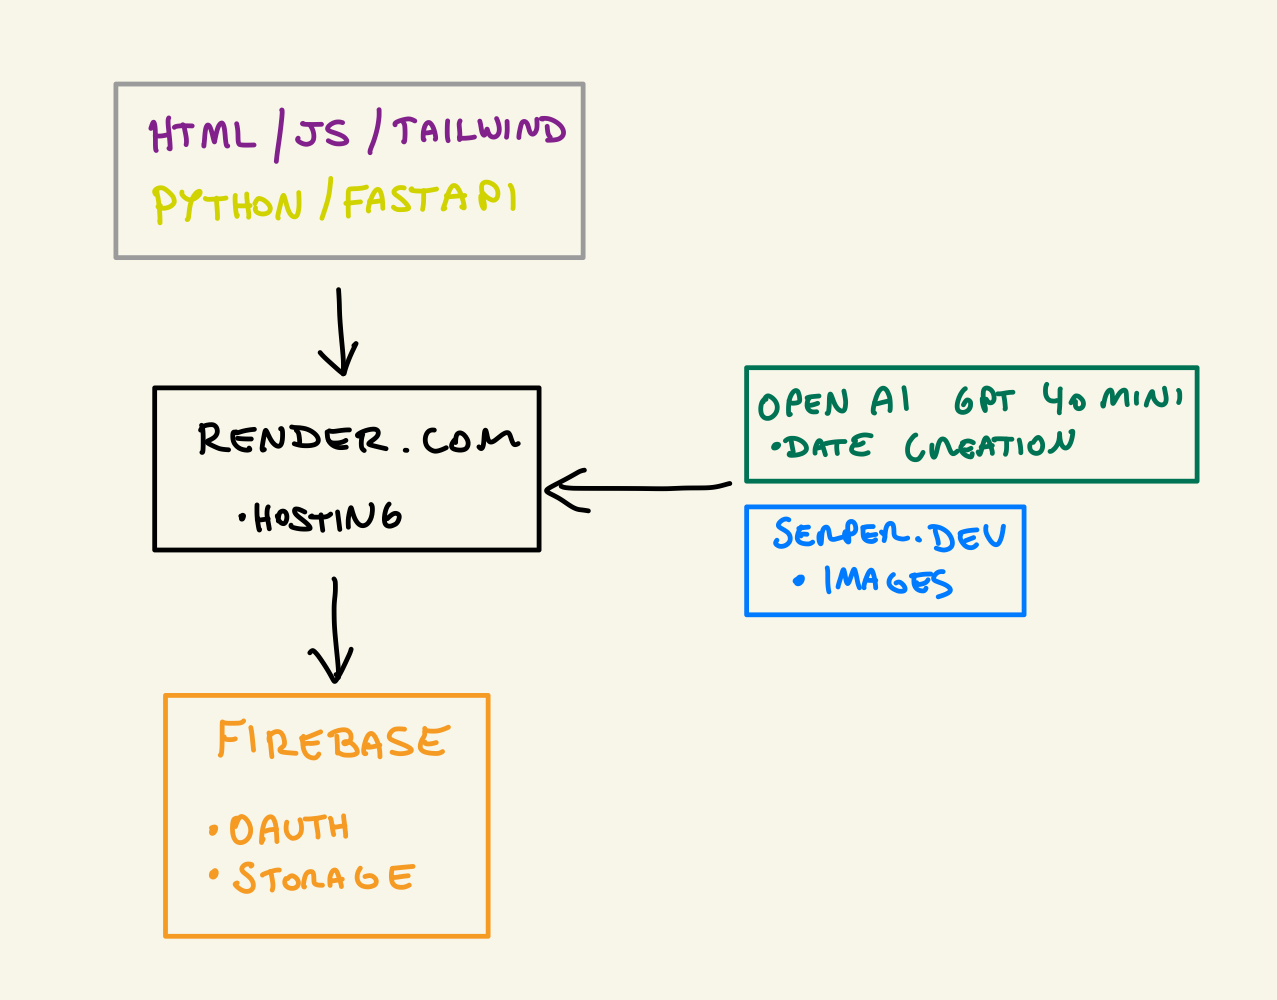 HTML / JS / TAILWIND
PYTHON / FASTAPI
RENDER.COM
• HOSTING
OPEN AI GPT 4o MINI
• DATE CREATION
SERPER.DEV
• IMAGES
FIREBASE
• OAUTH
• STORAGE